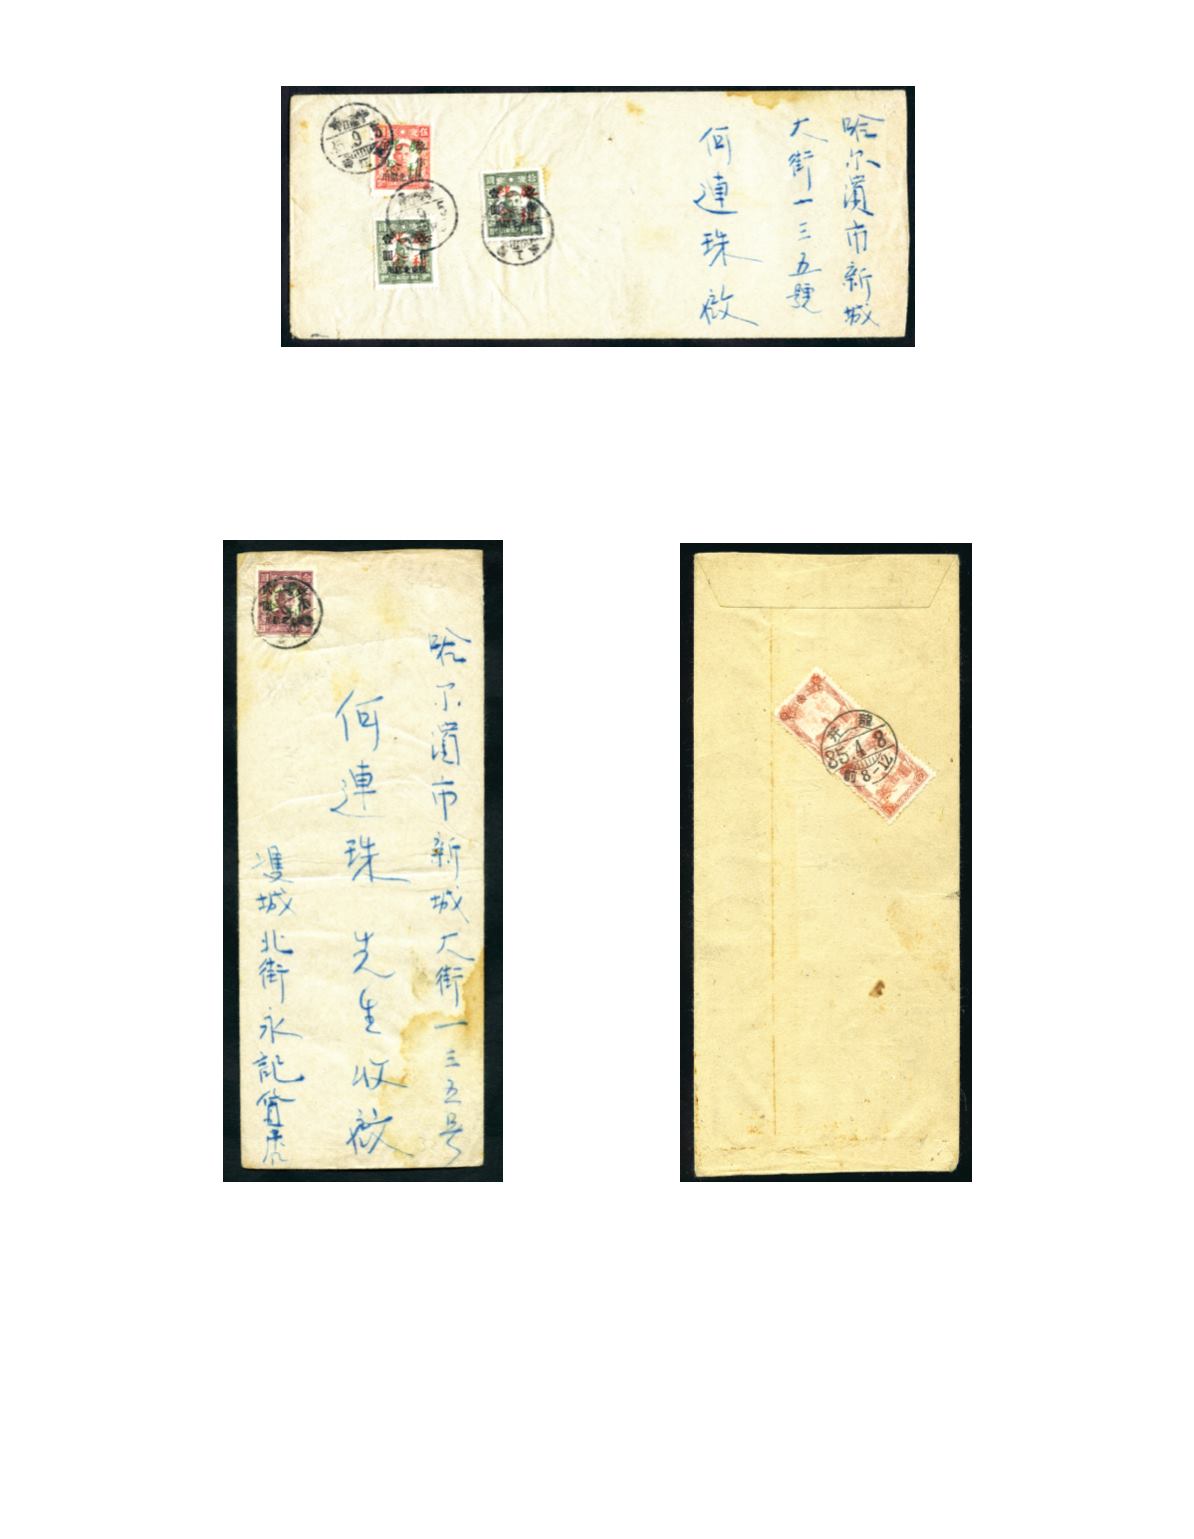 哈尔濱市新城
大街一三五號
何連珠啟
哈尔濱市新城大街一三五号
何連珠先生收啟
城北街永記
龍井
85.4.8
前8-12